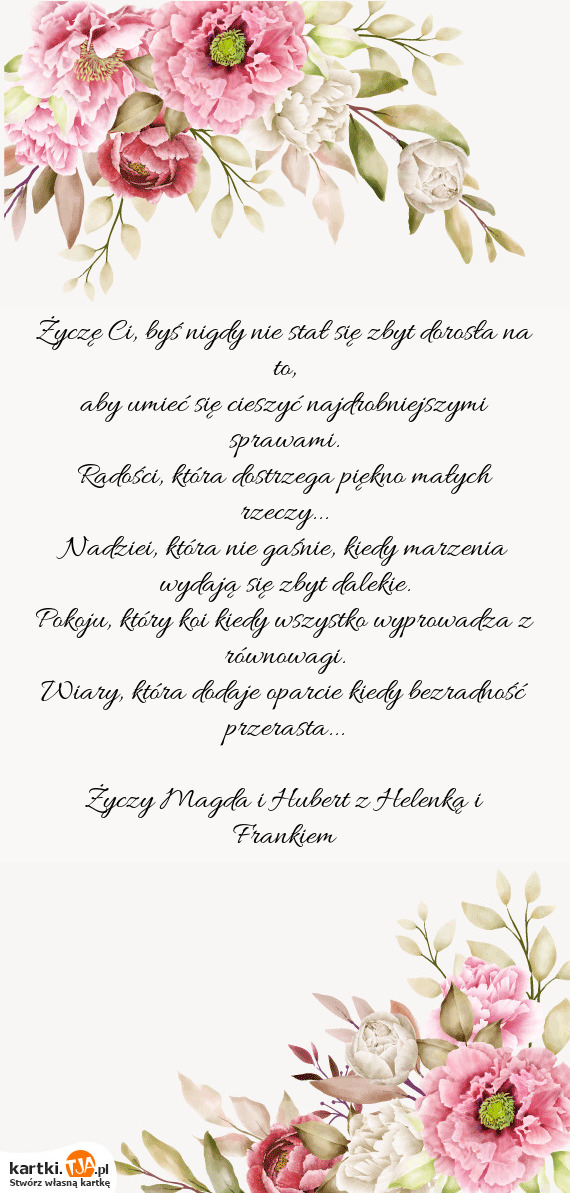 Życzę Ci, byś nigdy nie stał się zbyt dorosła na
to,
aby umieć się cieszyć najdrobniejszymi
sprawami.
Radości, która dostrzega piękno małych
rzeczy...
Nadziei, która nie gaśnie, kiedy marzenia
wydają się zbyt dalekie.
Pokoju, który koi kiedy wszystko wyprowadza z
równowagi.
Wiary, która dodaje oparcie kiedy bezradność
przerasta...
Życzy Magda i Hubert z Helenką i
Frankiem
kartki.TJA.pl
Stwórz własną kartkę